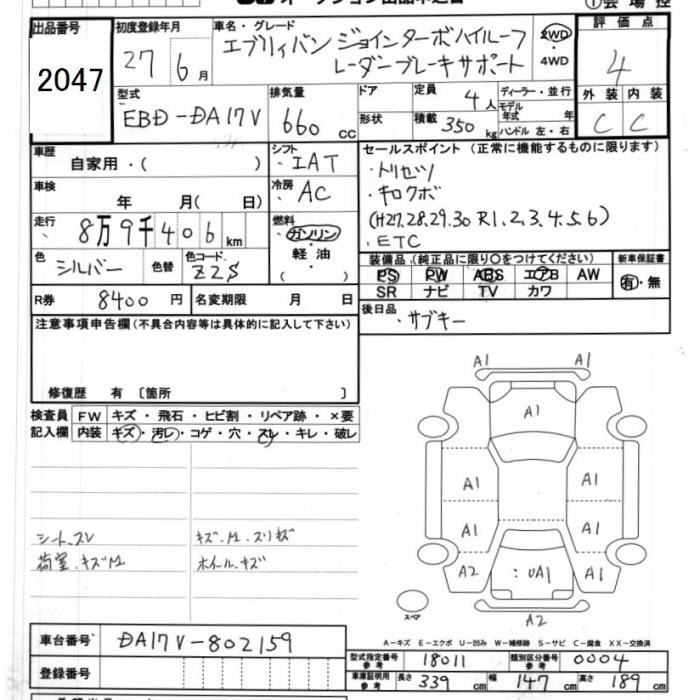 オークション出品申込書
①会場控
出品番号
2047
初度登録年月
27 6月
車名・グレード
エブリィバン ジョインターボハイルーフ
レーダーブレーキサポート
2WD
・
4WD
評価点
4
外装 内装
C C
型式
EBD-DA17V
排気量
660 cc
ドア
形状
定員 4人
積載 350 kg
ディーラー・並行
モデル年式 年
ハンドル 左・右
車歴
自家用・( )
シフト
・IAT
冷房
・AC
車検
年 月( 日)
走行
8万9千406km
燃料
ガソリン
・
軽油
・
( )
色
シルバー
色替
色コード
Z2S
R券 8400円
名変期限 月 日
セールスポイント(正常に機能するものに限ります)
・トリセツ
・キロクボ
(H27.28.29.30 R1.2.3.4.5.6)
・ETC
装備品(純正品に限り○をつけてください)
PS PW ABS エアB AW
SR ナビ TV カワ
新車保証書
有・無
後日品
・サブキー
注意事項申告欄(不具合内容等は具体的に記入して下さい)
修復歴 有 〔箇所 〕
検査員記入欄
FW キズ・飛石・ヒビ割・リペア跡・×要
内装 キズ・汚レ・コゲ・穴・スレ・キレ・破レ
シート.スレ キズ.M.スリキズ
荷室.キズM ホイール.キズ
A1
A1
A1
A1
A1
A1
A1
A1
A2
:UA1
A1
A2
スペア
A-キズ E-エクボ U-凹み W-補修跡 S-サビ C-腐食 XX-交換済
車台番号 DA17V-802159
登録番号
型式指定番号 参考 18011
類別区分番号 参考 0004
車庫証明用 参考 長さ 339cm 幅 147cm 高さ 189cm